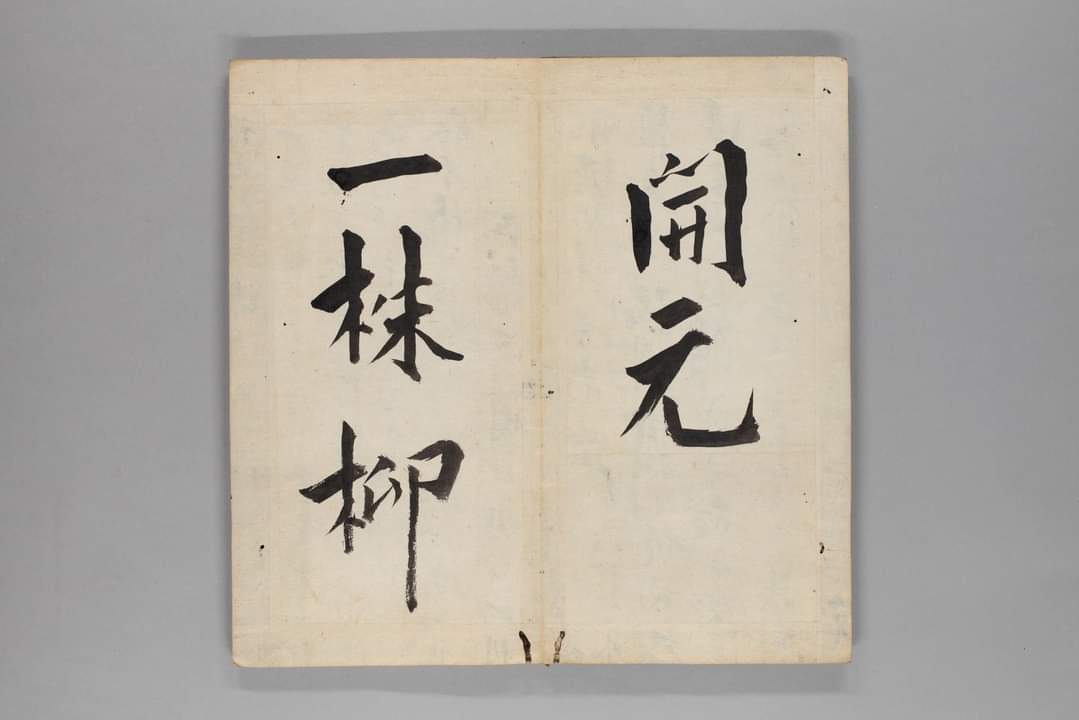 開元
一株柳